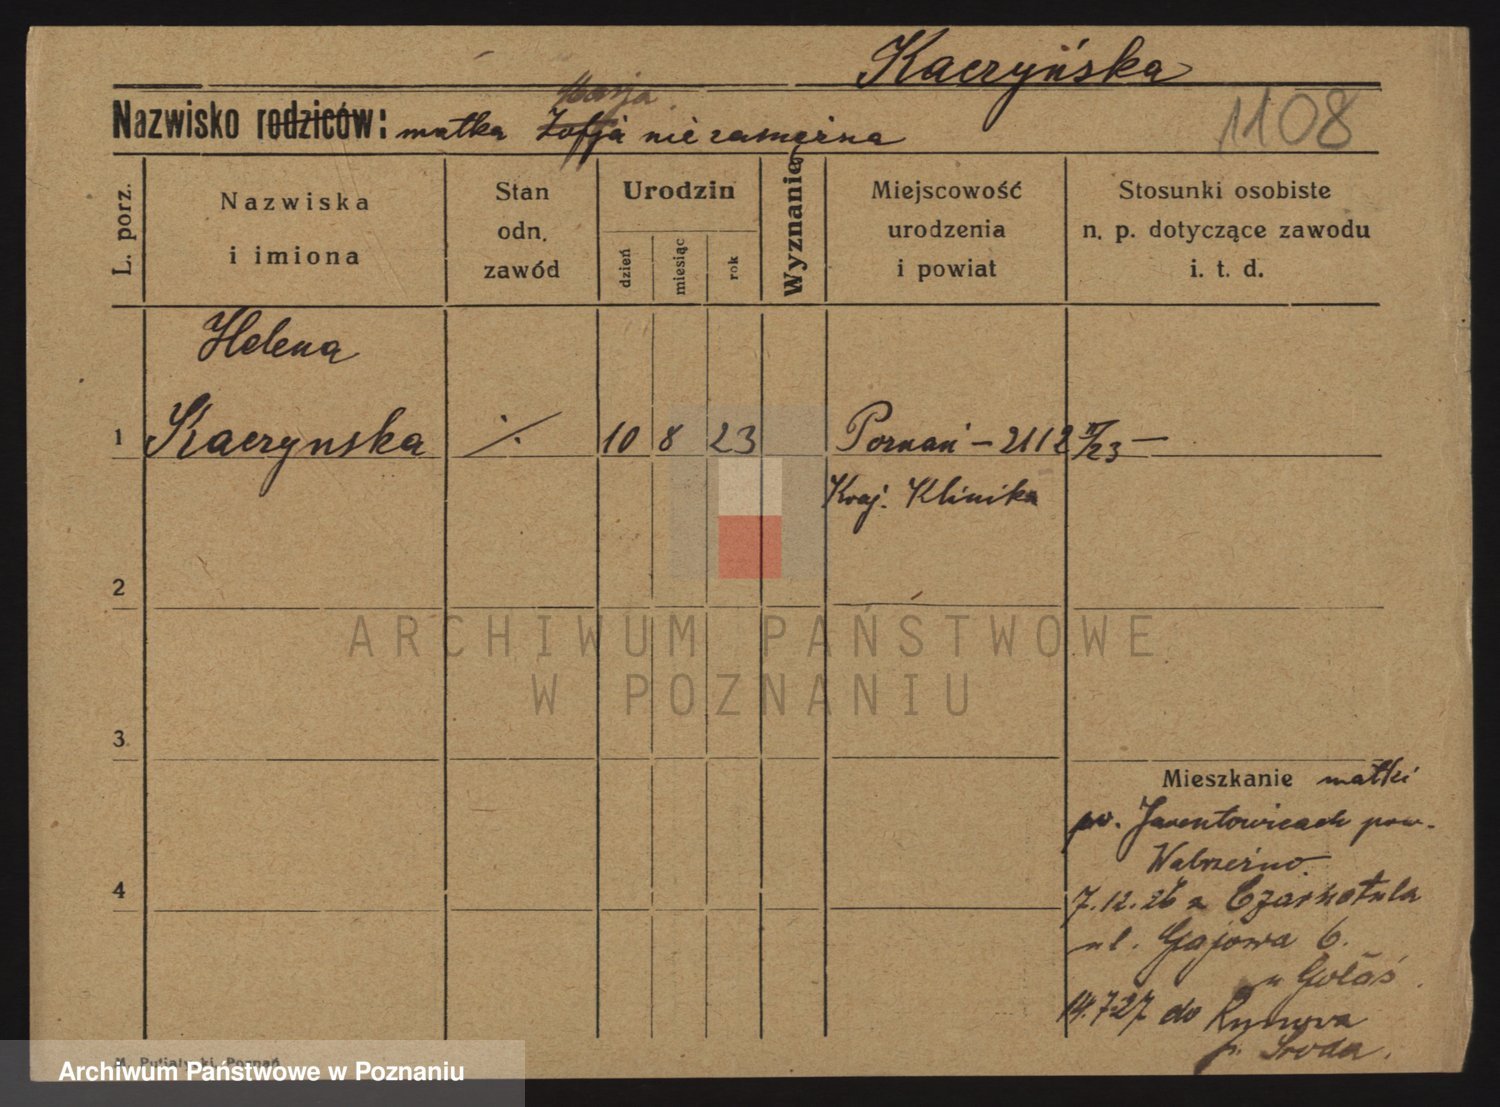 Kaczyńska
Marja
Nazwisko rodziców: matka Zofja niezamężna
1108
L. porz.
Nazwiska
i imiona
Stan
odn.
zawód
Urodzin
dzień
miesiąc
rok
Wyznanie
Miejscowość
urodzenia
i powiat
Stosunki osobiste
n. p. dotyczące zawodu
i. t. d.
Helena
1 Kaczynska ./. 10 8 23 Poznań – 2112 /23 —
Kraj. Klinika
2
3
4
ARCHIWUM PAŃSTWOWE
W POZNANIU
Mieszkanie matki
Jarentowicach pow.
Wabrzeźno.
7.12.26 z Czarnotula
ul. Gajowa 6.
u Gołaś
14.7.27 do Runowa
p. Środa.
M. Putiatycki, Poznań
Archiwum Państwowe w Poznaniu